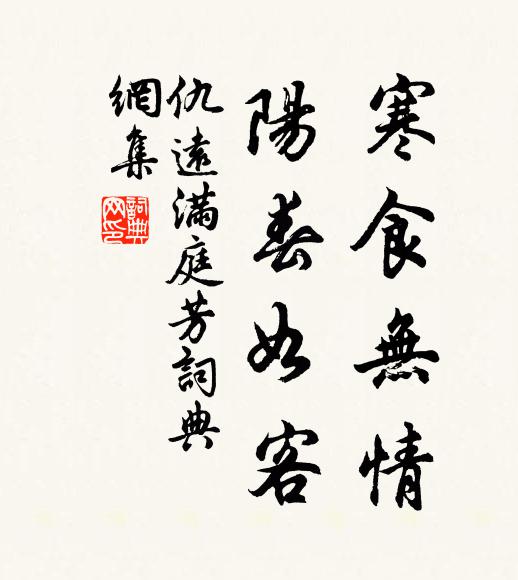 寒食無情
陽春如客
仇遠滿庭芳詞典
網集
詞典
网印